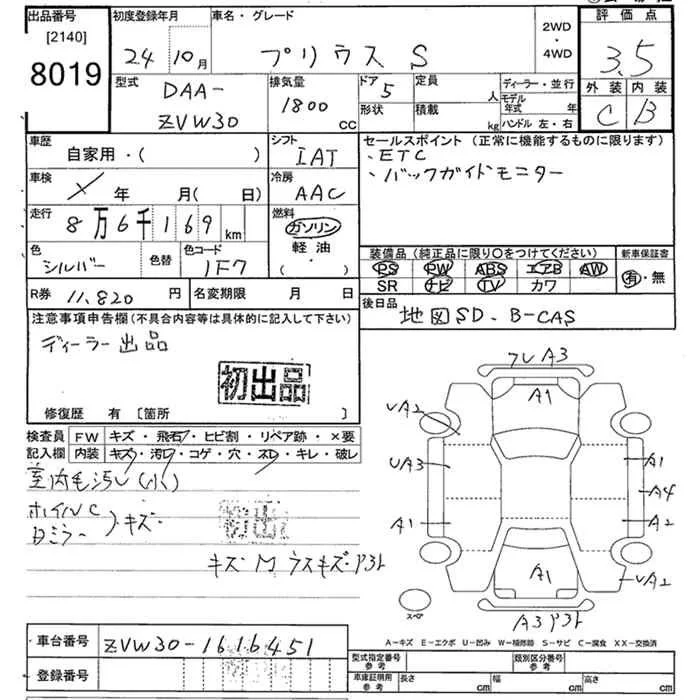 出品番号
[2140]
8019
初度登録年月
24 10月
車名・グレード
プリウス S
2WD
・
4WD
評価点
3.5
型式
DAA-
ZVW30
排気量
1800 CC
ドア
5
定員
人
形状
積載
kg
ディーラー・並行
モデル年式 年
ハンドル 左・右
外装 内装
C B
車歴
自家用・( )
シフト
IAT
セールスポイント (正常に機能するものに限ります)
・ETC
・バックガイドモニター
車検
年 月( 日)
冷房
AAC
走行
8万6千169 km
燃料
ガソリン
軽油
・( )
色
シルバー
色替
色コード
1F7
装備品 (純正品に限り○をつけてください)
PS PW ABS エアB AW
SR ナビ TV カワ
新車保証書
有・無
R券 11,820 円
名変期限 月 日
後日品
地図SD、B-CAS
注意事項申告欄(不具合内容等は具体的に記入して下さい)
ディーラー出品
初出品
修復歴 有 [箇所 ]
検査員 FW キズ・飛石・ヒビ割・リペア跡・×要
記入欄 内装 キズ・汚レ・コゲ・穴・スレ・キレ・破レ
室内毛汚レ(小)
ホイルC
Dミラー キズ
初出
キズ M ウスキズ・アコト
フレA3
A1
UA2
UA3
A1
A1
A4
A2
A1
UA2
スペア
A3アコト
A-キズ E-エクボ U-凹み W-補修跡 S-サビ C-腐食 XX-交換済
車台番号 ZVW30-1616451
登録番号
型式指定番号
参考
類別区分番号
参考
車庫証明用
参考
長さ cm
幅 cm
高さ cm